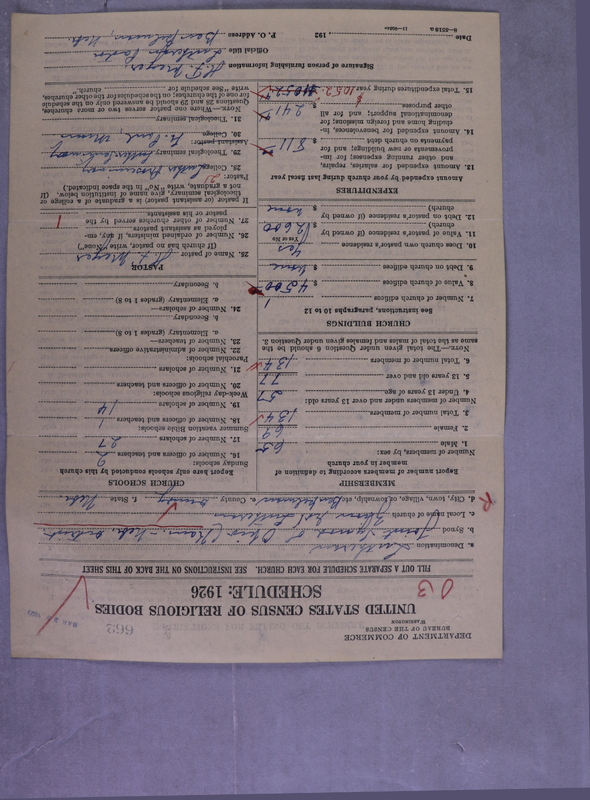 DEPARTMENT OF COMMERCE
BUREAU OF THE CENSUS
WASHINGTON
662
UNITED STATES CENSUS OF RELIGIOUS BODIES
SCHEDULE: 1926
03
FILL OUT A SEPARATE SCHEDULE FOR EACH CHURCH. SEE INSTRUCTIONS ON THE BACK OF THIS SHEET
a. Denomination Lutheran
b. Synod Joint Synod of Ohio
c. Local name of church Lutheran
d. City, town, village, or township, etc. Benkelman e. County Dundy f. State Nebr.
MEMBERSHIP
Report number of members according to definition of member in your church
Number of members, by sex:
1. Male 65
2. Female 69
3. Total number of members 134
Number of members under and over 13 years old:
4. Under 13 years of age 57
5. 13 years old and over 77
6. Total number of members 134
NOTE.—The total given under Question 6 should be the same as the total of males and females given under Question 3.
CHURCH BUILDINGS
See instructions, paragraphs 10 to 12
7. Number of church edifices 1
8. Value of church edifices $ 4500
9. Debt on church edifices $ none
10. Does church own pastor's residence Yes
(Yes or No)
11. Value of pastor's residence (if owned by church) $ 2600
12. Debt on pastor's residence (if owned by church) $ none
EXPENDITURES
Amount expended during last fiscal year
13. Amount expended for salaries, repairs, and other running expenses; for improvements or new buildings; and for payments on church debt $ 811
14. Amount expended for benevolences, including home and foreign missions; for denominational support; and for all other purposes $ 241
15. Total expenditures during year $ 1052
CHURCH SCHOOLS
Report here only schools conducted by this church
Sunday schools:
16. Number of officers and teachers 2
17. Number of scholars 27
Summer vacation Bible schools:
18. Number of officers and teachers 1
19. Number of scholars 14
Week-day religious schools:
20. Number of officers and teachers
21. Number of scholars
Parochial schools:
22. Number of administrative officers
23. Number of teachers—
a. Elementary (grades 1 to 8)
b. Secondary
24. Number of scholars—
a. Elementary (grades 1 to 8)
b. Secondary
PASTOR
25. Name of pastor H. F. Meyer
(If church has no pastor, write "None")
26. Number of ordained ministers, if any, employed as assistant pastors
27. Number of other churches served by the pastor or his assistants 1
If pastor (or assistant pastor) is a graduate of a college or theological seminary, give name of institution below. (If not a graduate, write "No" in the space indicated.)
Pastor:
28. College Luther
29. Theological seminary Luther Seminary
Assistant pastor: St. Paul, Minn
30. College
31. Theological seminary
NOTE.—Where one pastor serves two or more churches, Questions 28 and 29 should be answered only on the schedule for one of the churches; on the schedules for the other churches, write "See schedule for church."
Signature of person furnishing information H. F. Meyer
Official title Lutheran Pastor
P. O. Address Benkelman, Nebr.
Date , 192